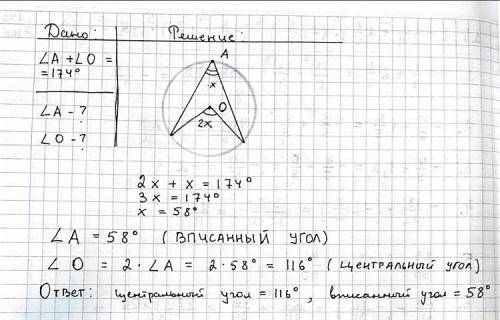 Дано:
Решение:
∠A + ∠O =
= 174°
∠A - ?
∠O - ?
A
x
O
2x
2x + x = 174°
3x = 174°
x = 58°
∠A = 58° (вписанный угол)
∠O = 2·∠A = 2·58° = 116° (центральный угол)
Ответ: центральный угол = 116°, вписанный угол = 58°